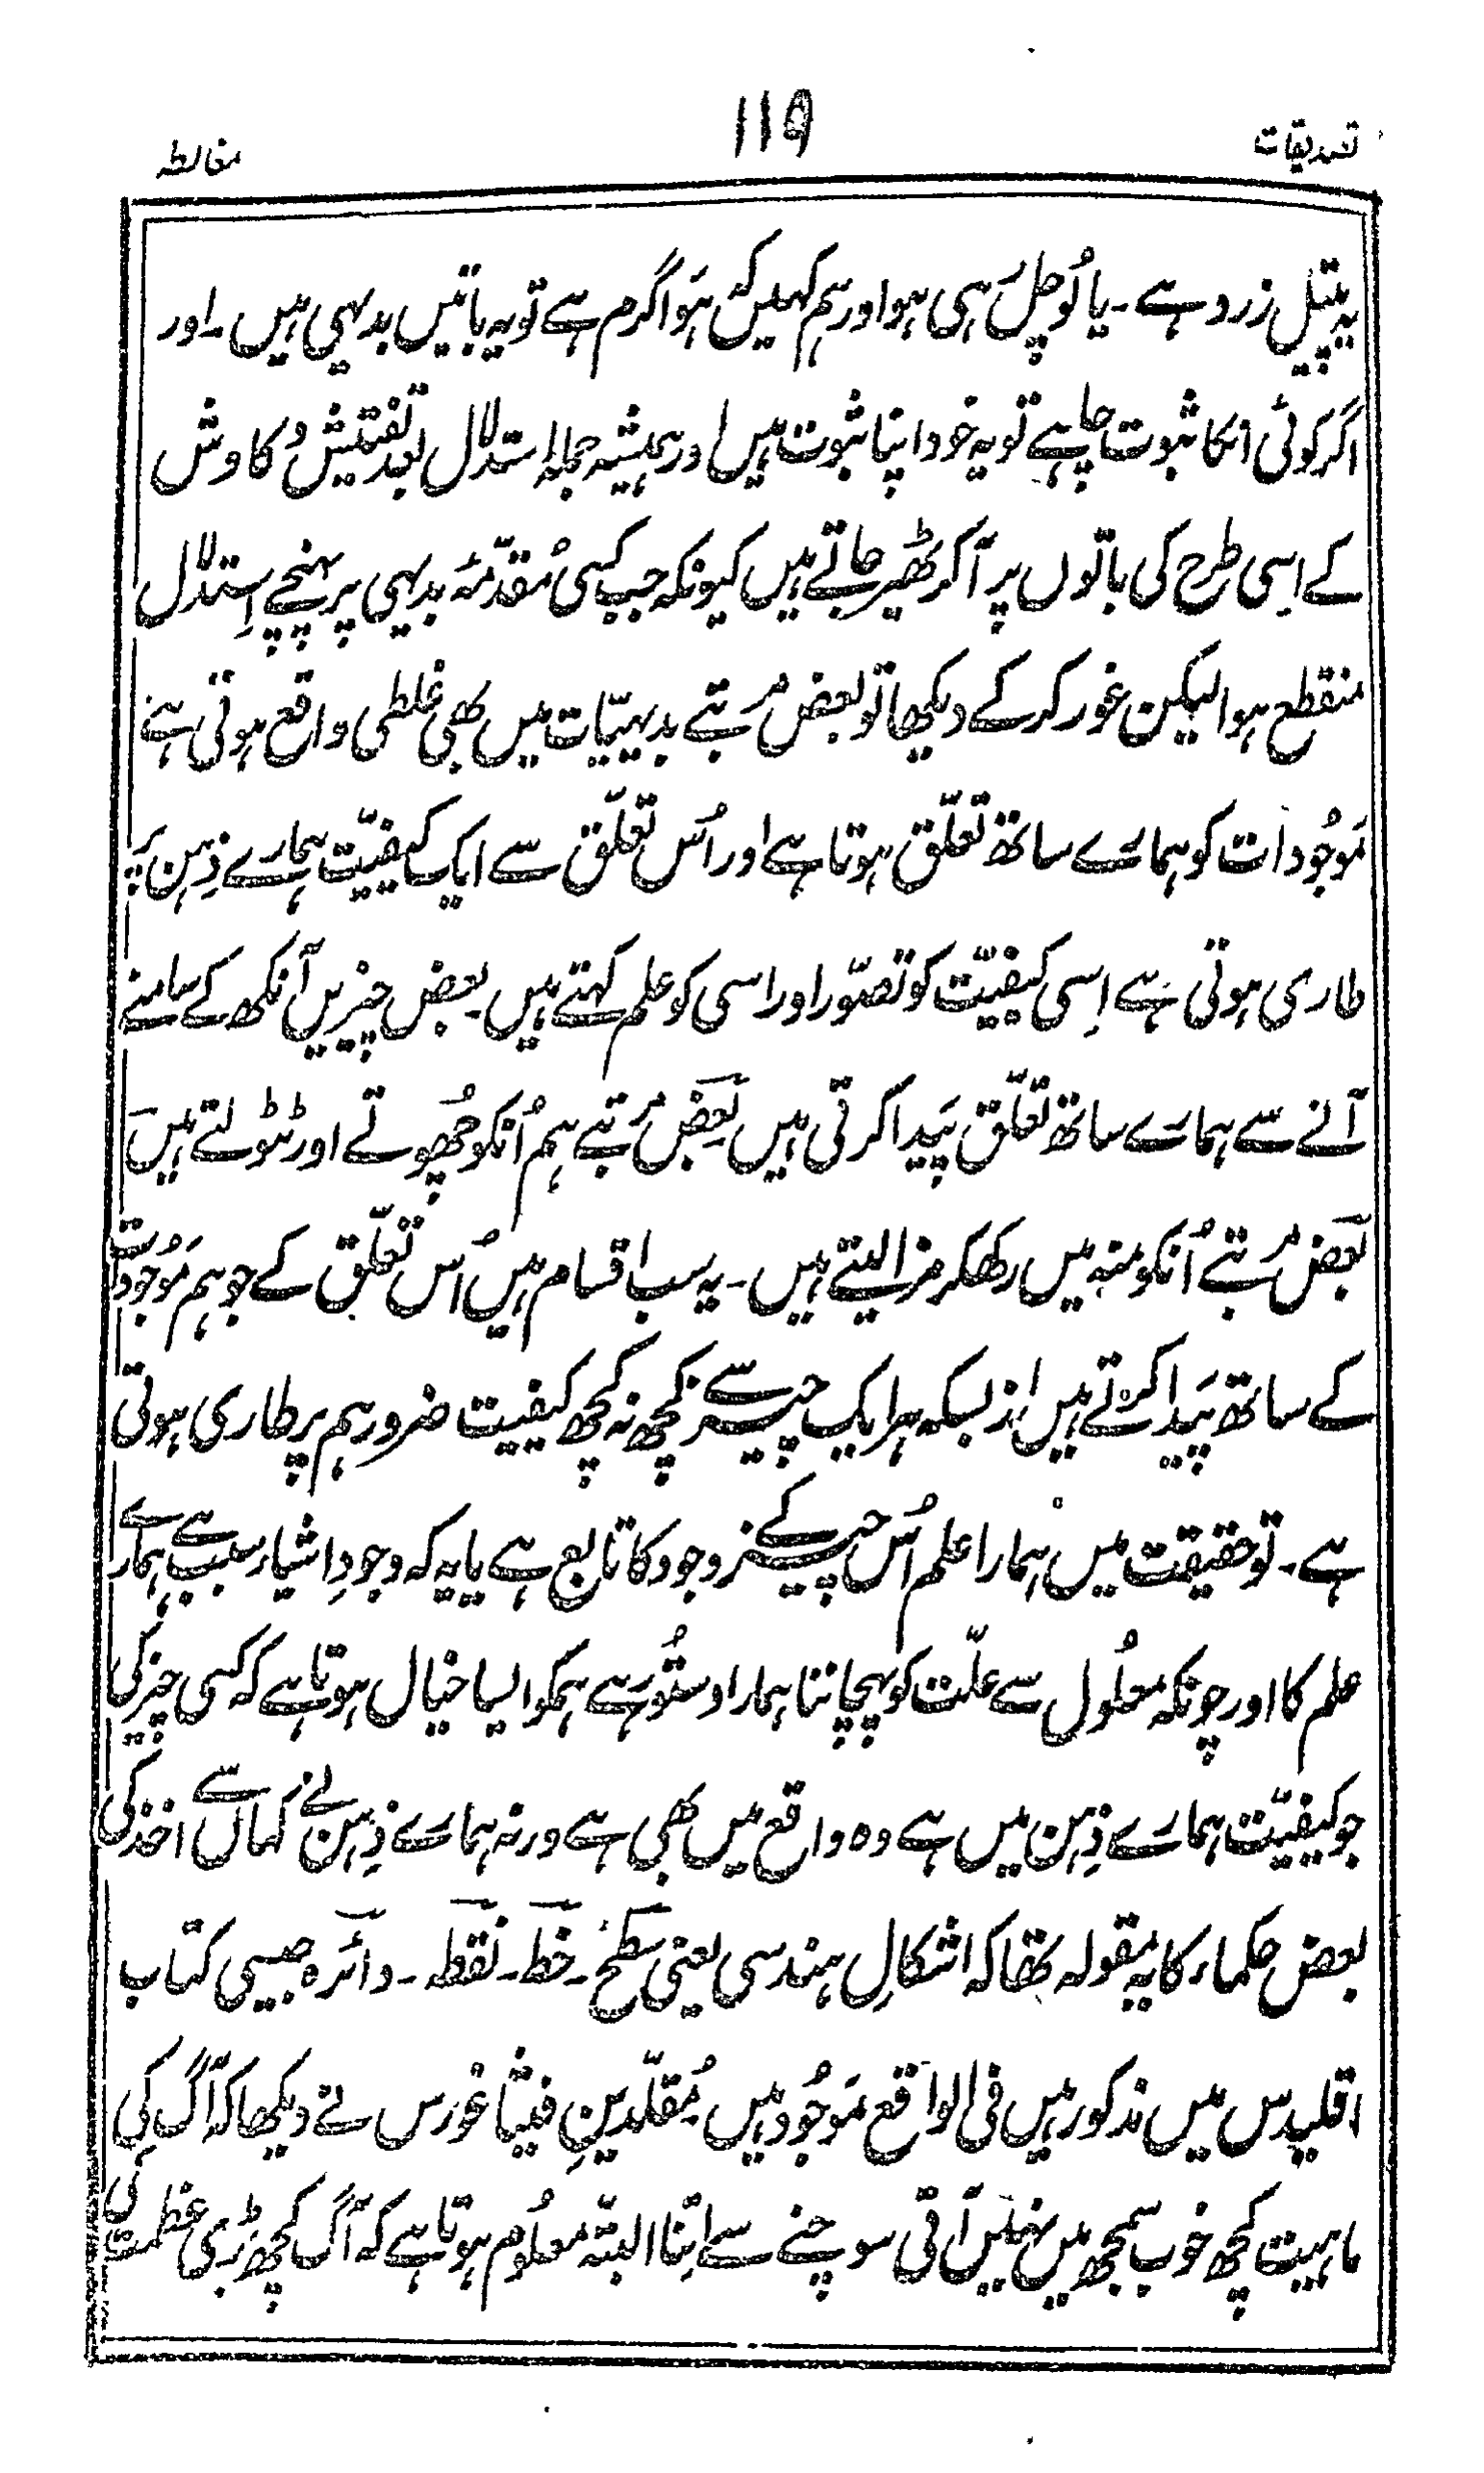 تصدیقات
۱۱۹
مغالطہ
یہ پیتل زرد ہے ۔ یا لُو چل رہی ہو اور ہم کہیں کہ ہَوا گرم ہے تو یہ باتیں بدیہی ہیں ۔ اور
اگر کوئی انکا ثبوت چاہے تو یہ خود اپنا ثبوت ہیں اور ہمیشہ جملہ استدلال بعد تفتیش و کاوش
کے اِسی طرح کی باتوں پر آکر ٹھیر جاتے ہیں کیونکہ جب کسی مُقدّمۂ بدیہی پر پہنچے اِستدلال
منقطع ہوا لیکن غور کرکے دیکھا تو بعض مرتبے بدیہیّات میں بھی غلطی واقع ہوتی ہے
مَوجُودات کو ہمارے ساتھ تعلّق ہوتا ہے اور اُس تعلّق سے ایک کیفیّت ہمارے ذِہن پر
طاری ہوتی ہے اِسی کیفیّت کو تصوّر اور اسی کو علم کہتے ہیں ۔ بعض چیزیں آنکھ کے سامنے
آنے سے ہمارے ساتھ تعلّق پَیدا کرتی ہیں بَعض مرتبے ہم اُنکو چُھوتے اور ٹٹولتے ہیں
بَعض مرتبے اُنکو منہ میں رکھکر مزا لیتے ہیں ۔ یہ سب اقسام ہیں اُس تعلّق کے جو ہم مَوجُودات
کے ساتھ پَیدا کرتے ہیں از بسکہ ہر ایک چیز سے کچھ نہ کچھ کیفیت ضرور ہم پر طاری ہوتی
ہے ۔ تو حقیقت میں ہمارا علم اُس چیز کے وجود کا تابع ہے یا یہ کہ وجودِ اشیاء سبب ہے ہمارے
علم کا اور چونکہ معلُول سے علّت کو پہچاننا ہمارا دستُور ہے ہمکو ایسا خیال ہوتا ہے کہ کسی چیز کی
جو کیفیّت ہمارے ذِہن میں ہے وہ واقع میں بھی ہے ورنہ ہمارے ذِہن نے کہاں سے اخذ کی
بعض حکماء کا یہ مقولہ تھا کہ اشکالِ ہندسی یعنی سطح ۔ خط ۔ نقطہ ۔ دائرہ جیسی کتاب
اقلیدس میں مذکور ہیں فی الواقع مَوجُود ہیں مُقلّدینِ فیثا غورس نے دیکھا کہ آگ کی
ماہیت کچھ خوب سمجھ میں نہیں آتی سوچنے سے اِتنا البتّہ معلُوم ہوتا ہے کہ آگ کچھ بڑی عظمت کی